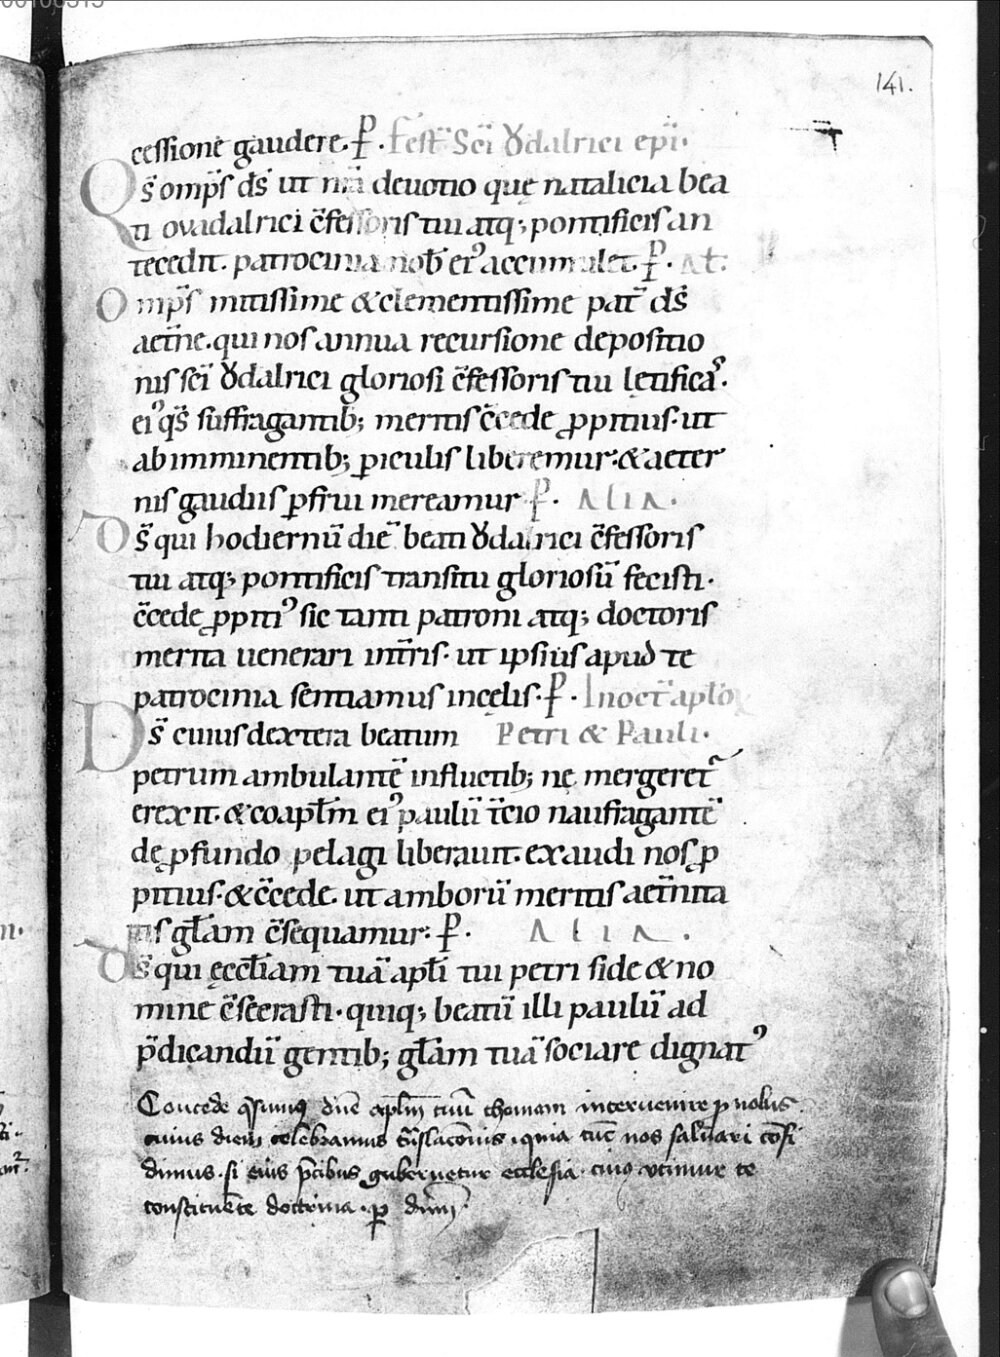 141.
cessione gaudere. P̄. Fest̄ Sc̄i Ȣdalrici ep̄i.
Qs̄ omp̄s ds̄ ut nr̄a deuotio quę natalicia bea
ti ovadalrici c̄fessoris tui atq; pontificis an
tecedit. patrocinia nob̄ ei᾽ accumulet. P̄. At̄.
Omp̄s mitissime & clementissime pat̄ ds̄
aet̄ne. qui nos annua recursione depositio
nis sc̄i Ȣdalrici gloriosi c̄fessoris tui lętifica᷒.
ei᾽ qs̄ suffragantib; meritis c̄cede ꝓpitius. ut
ab imminentib; ꝑiculis liberemur. & aeter
nis gaudiis ꝑfrui mereamur P̄. ALIA.
Ds̄ qui hodiernū diē beati Ȣdalrici c̄fessoris
tui atq; pontificis transitu gloriosū fecisti.
c̄cede ꝓpiti᾽ sic tanti patroni atq; doctoris
merita uenerari int̄ris. ut ipsius apud te
patrocinia sentiamus in cęlis. P̄. In oct̄ aptō
Ds̄ cuius dextera beatum Petri & Pauli.
petrum ambulantē in fluctib; ne mergeret᷑
erexit. & coapt̄m ei᾽ paulū t̄cio naufragantē
de ꝓfundo pelagi liberauit. exaudi nos ꝓ
pitius. & c̄cede. ut amborū meritis aet̄nita
tis gt̄am c̄sequamur: P̄. ALIA.
Ds̄ qui ęcct̄iam tuā apt̄i tui petri fide & no
mine c̄secrasti. quiq; beatū illi paulū ad
p̄dicandū gentib; gt̄am tuā sociare dignat᾽
Concede qs̄umus dn̄e apl̄m tuū thomam interuenire ꝓ nobis
cuius diem celebramus t̄nslac̄onis. quia tūc nos saluari cōfi
dimus. si eius p̄cibus gubernetur ecclesia. cui᾽ vtimur te
constituēte doctrina. ꝑ dn̄m